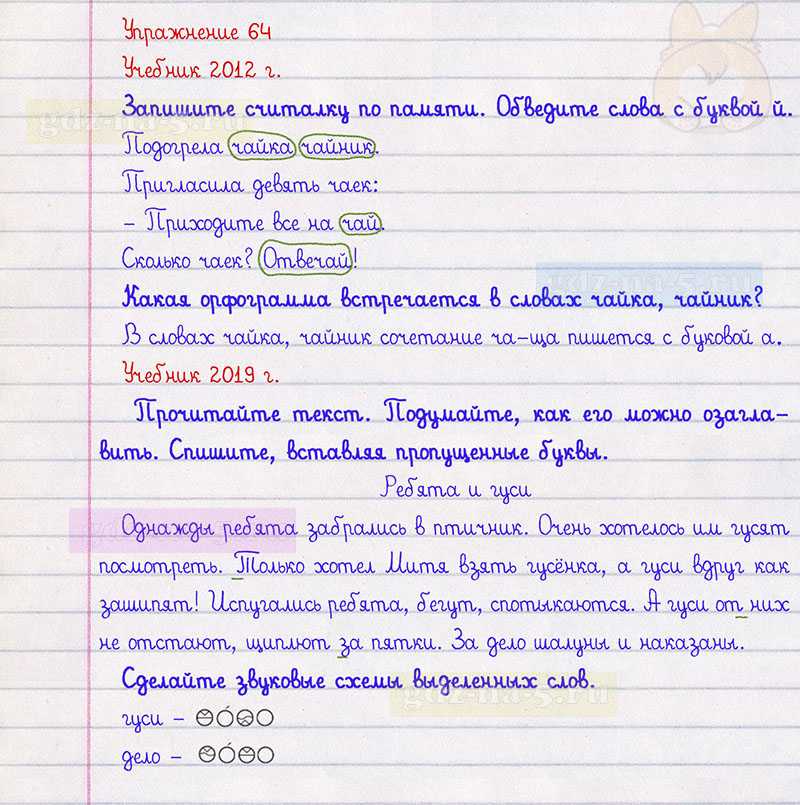 Упражнение 64
Учебник 2012 г.
Запишите считалку по памяти. Обведите слова с буквой й.
gdz-na-5.ru
Подогрела чайка чайник.
Пригласила девять чаек:
– Приходите все на чай.
Сколько чаек? Отвечай!
gdz-na-5.ru
Какая орфограмма встречается в словах чайка, чайник?
В словах чайка, чайник сочетание ча-ща пишется с буковой а.
Учебник 2019 г.
Прочитайте текст. Подумайте, как его можно озагла-
вить. Спишите, вставляя пропущенные буквы.
Ребята и гуси
Однажды ребята забрались в птичник. Очень хотелось им гусят
посмотреть. Только хотел Митя взять гусёнка, а гуси вдруг как
зашипят! Испугались ребята, бегут, спотыкаются. А гуси от них
не отстают, щиплют за пятки. За дело шалуны и наказаны.
Сделайте звуковые схемы выделенных слов.
gdz-na-5.ru
гуси –
дело –